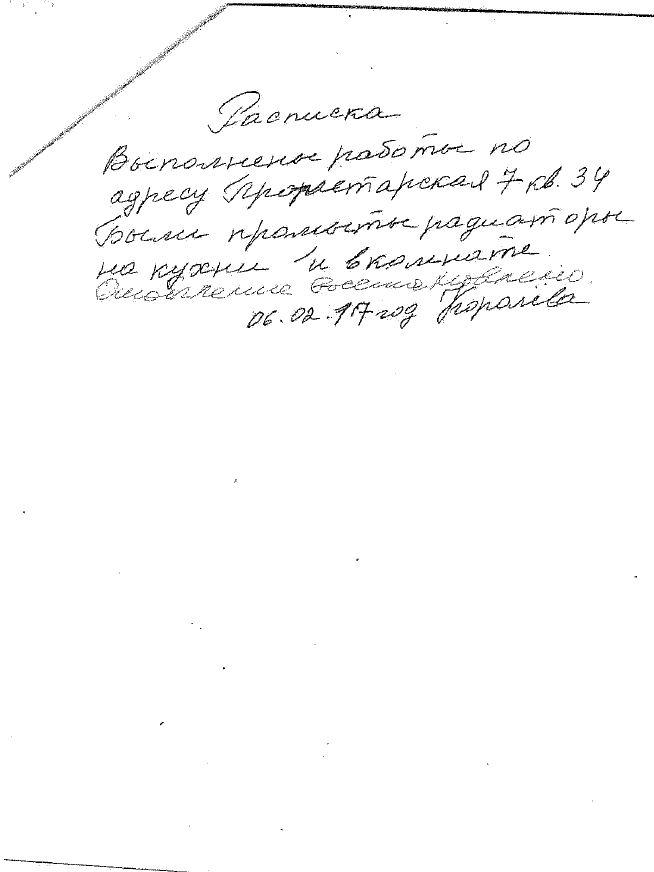 Расписка
Выполнены работы по
адресу Пролетарская 7 кв. 34
Были промыты радиаторы
на кухни и в комнате.
Отопление восстановлено.
06.02.17 год Королёва